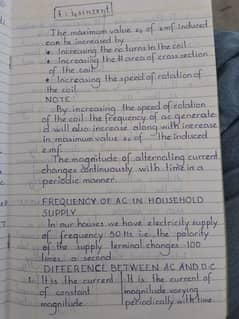 The maximum value e₀ of emf induced
can be increased by
• Increasing the no. turns in the coil
• Increasing the area of cross section
of the coil
• Increasing the speed of rotation of
the coil
NOTE:
By increasing the speed of rotation
of the coil the frequency of ac generate
d will also increase along with increase
in maximum value e₀ of the induced
emf.
The magnitude of alternating current
changes continuously with time in a
periodic manner.
FREQUENCY OF AC IN HOUSEHOLD
SUPPLY
In our houses we have electricity supply
of frequency 50 Hz i.e. the polarity
of the supply terminal changes 100
times a second
DIFFERENCE BETWEEN AC AND DC
It is the current It is the current of
of constant magnitude varying
magnitude periodically with time